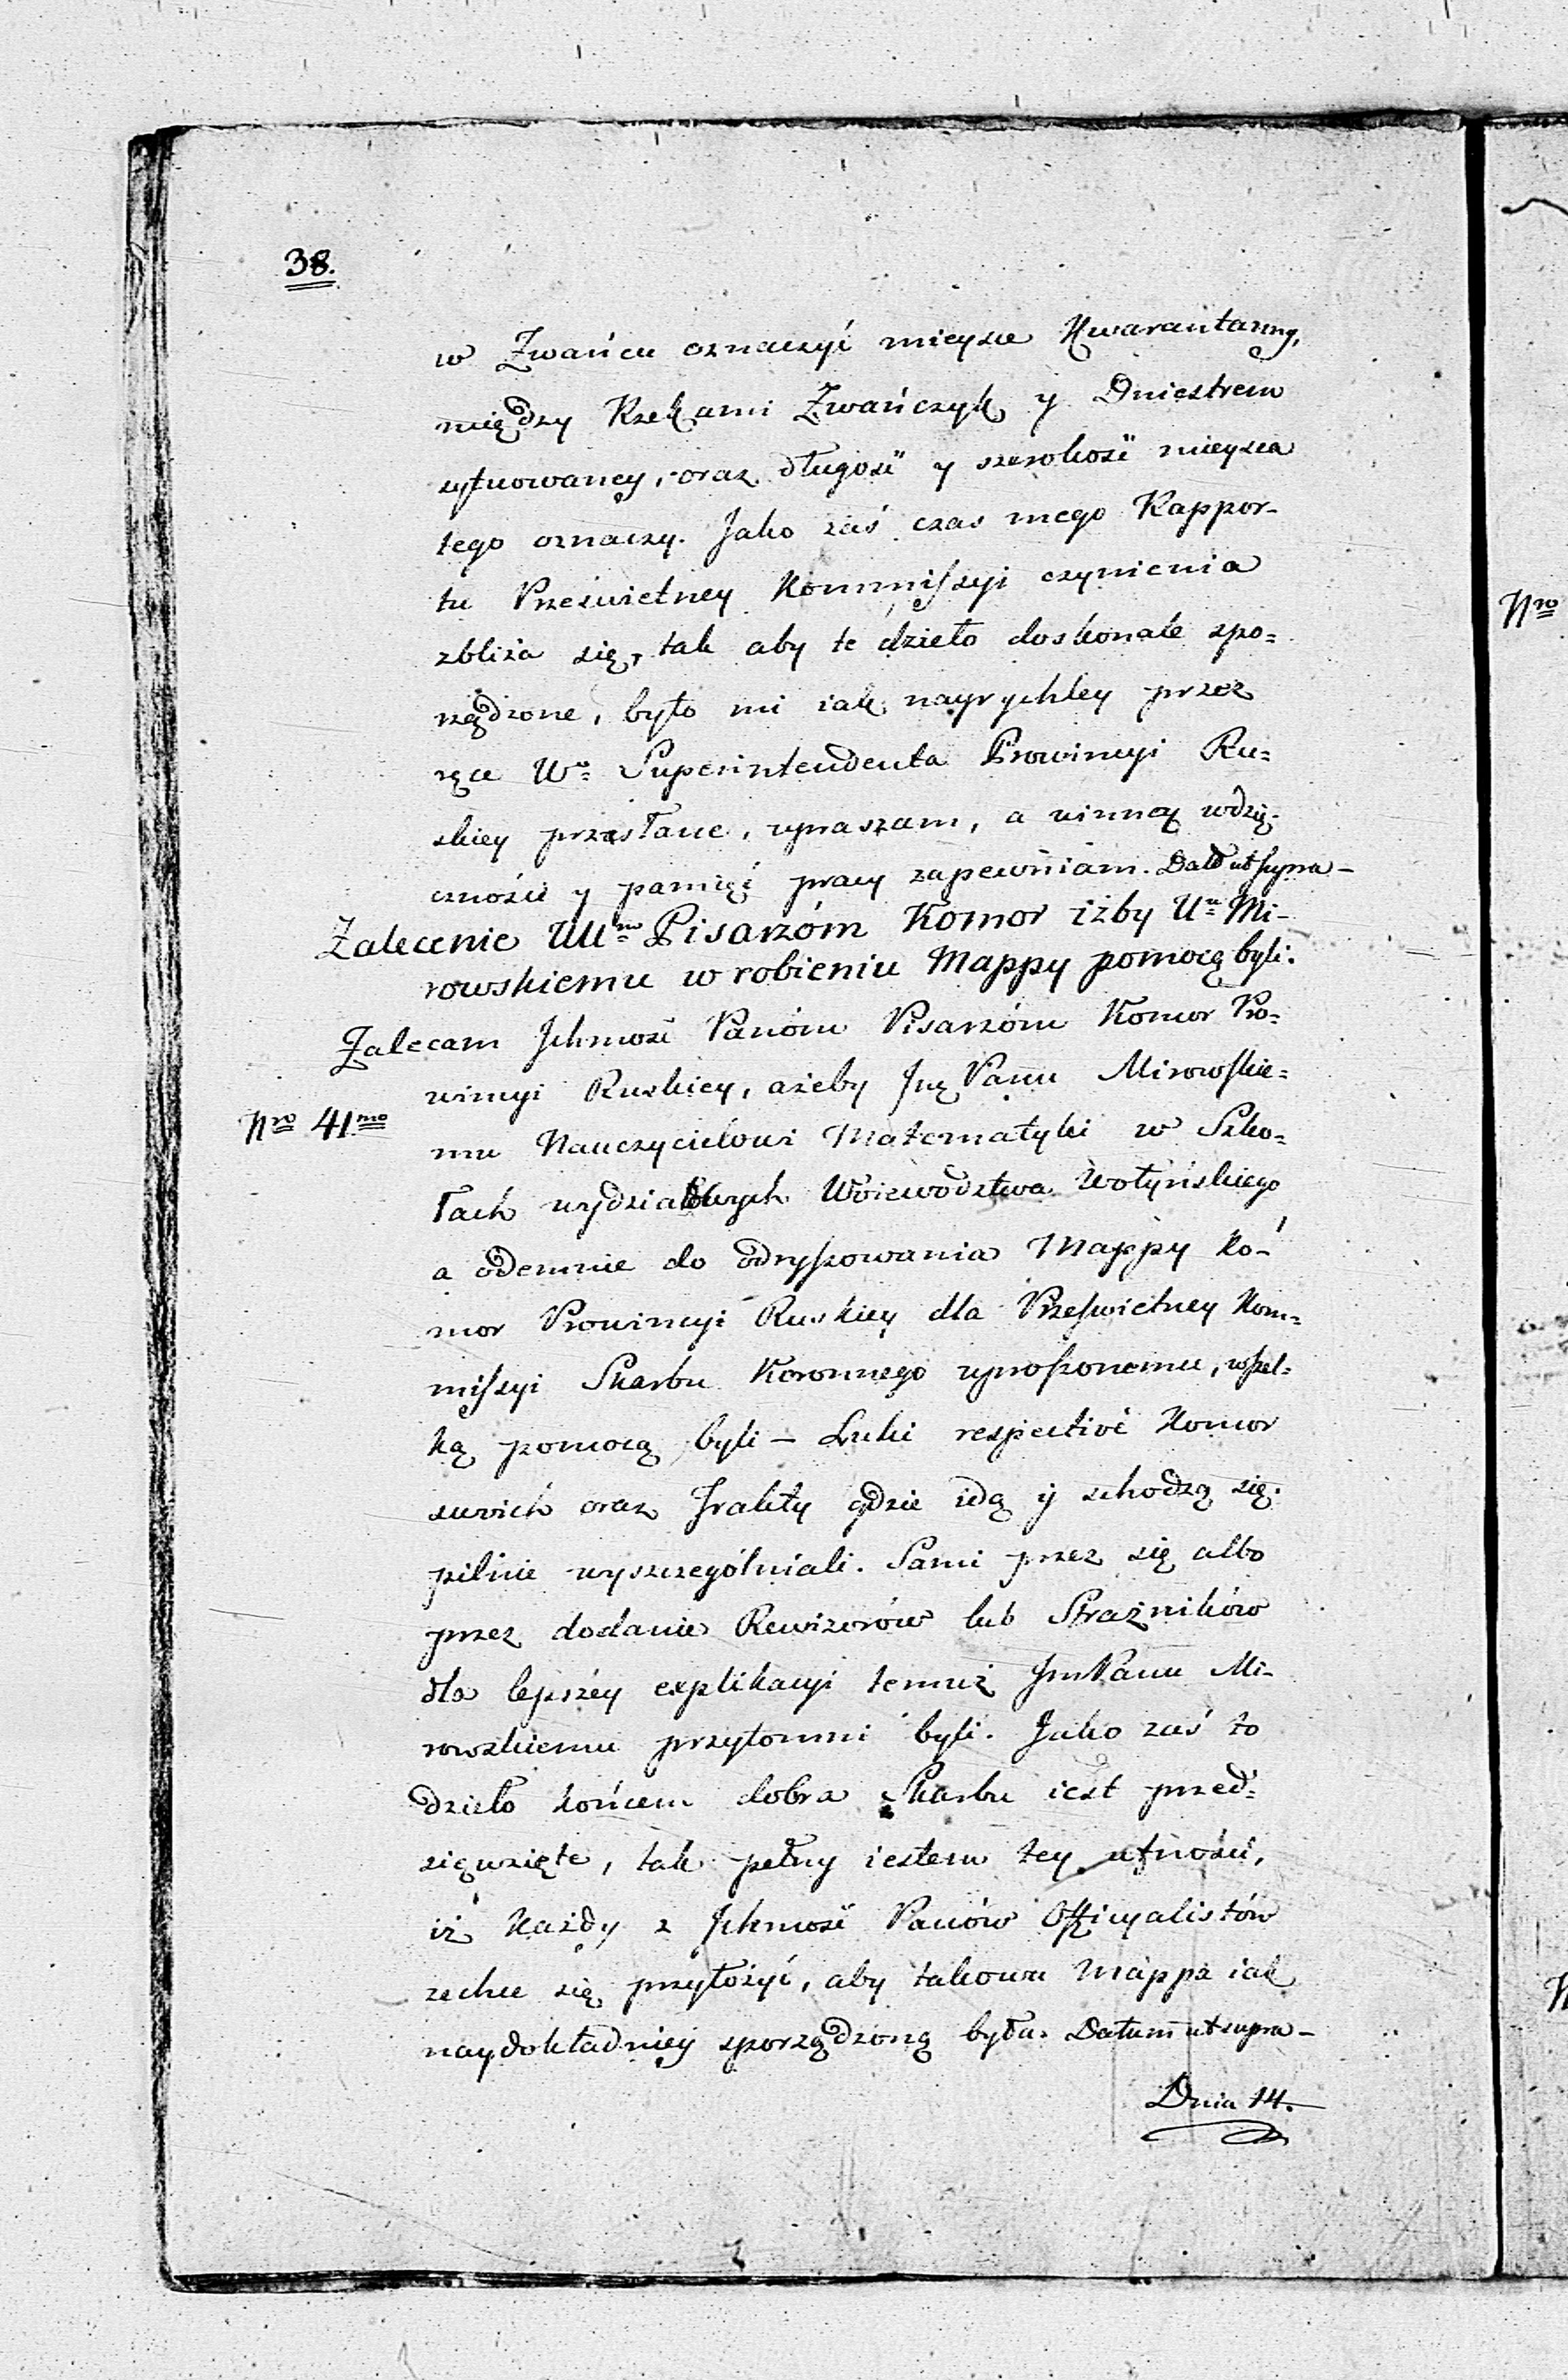 38.
w Zwańcu oznaczyć mieysce Kwarantanny,
między Rzekami Zwańczyk y Dniestrem
sytuowaney, oraz długość y szerokość mieysca
tego oznaczy. Jako zaś czas mego Rappor-
tu Prześwietney Kommissyi czynienia
zbliża się, tak aby te dzieło doskonale spo=
rządzone, było mi iak nayrychley przez
ręce Wo Superintendenta Prowincyi Ru=
skiey przesłane, upraszam, a winną wdzię-
czność y pamięć pracy zapewniam. Datt ut supra—
Zalecenie UUm Pisarzóm Komor iżby Un Mi-
rowskiemu w robieniu Mappy pomocą byli.
Zalecam Jchmość Panóm Pisarzóm Komor Pro=
wincyi Ruskiey, ażeby Jmę Panu Mirowskie=
Nro 41mo
mu Nauczycielowi Matematyki w Szko=
łach wydziałowych Wóiewodztwa Wołyńskiego
a odemnie do odrysowania Mappy Ko-
mor Prowincyi Ruskiey dla Prześwietney Kom=
missyi Skarbu Koronnego uproszonemu, wszel=
ką pomocą byli — Luki respective Komor
swoich oraz Trakty gdzie idą ÿ schodzą się
pilnie wyszczególniali. Sami przez się albo
przez dodanie Rewizorów lub Strażników
dla lepszey explikacyi temuż JmPanu Mi-
rowskiemu przytomni byli. Jako zaś to
dzieło końcem dobra Skarbu iest przed=
sięwzięte, tak pełny iestem tey ufności,
iż każdy z Jchmość Panów Officyalistów
zechce się przyłożyć, aby takowa Mappa iak
naydokładniey sporządzoną była. Datum ut supra—
Dnia 14.
Nro